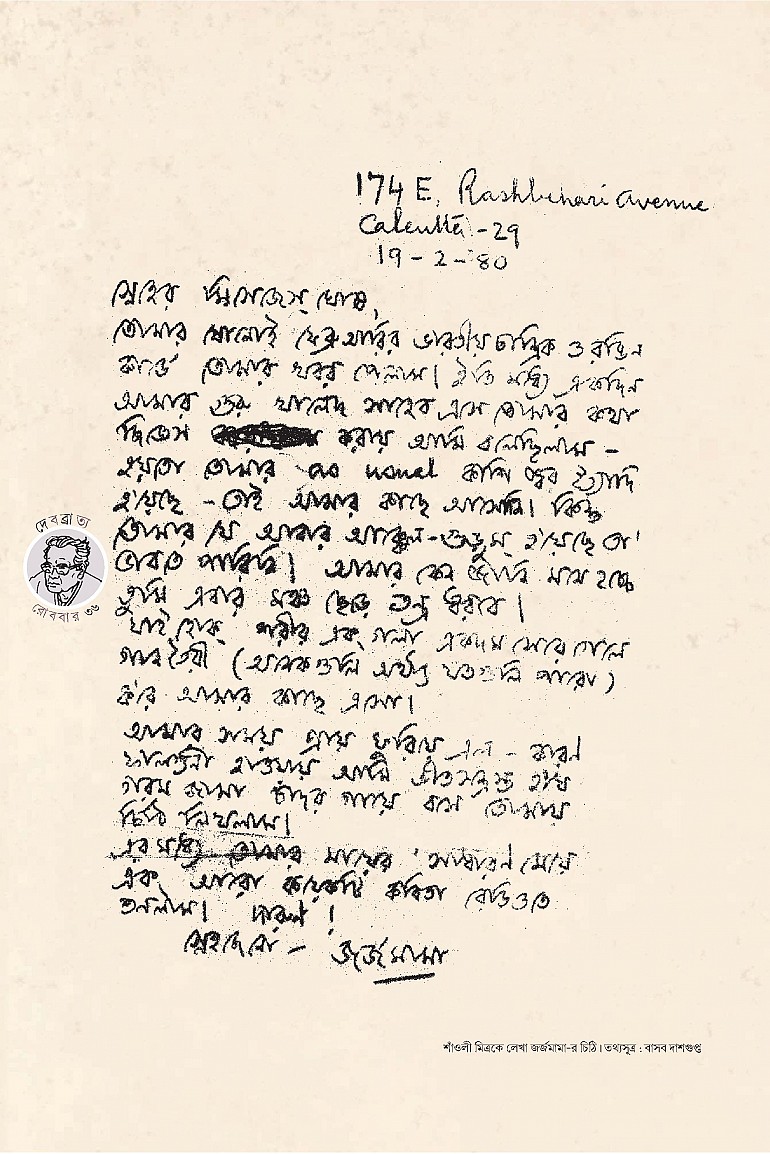 174 E, Rashbehari Avenue
Calcutta - 29
19 - 2 - 80
স্নেহের মিসেজেস্ ঘোষ,
তোমার ষোলোই ফেব্রুআরির ভারতীয় চান্দ্রিক ও রঙিন
কার্ডে তোমার খবর পেলাম। ইতি মধ্যে একদিন
আমার গুরু খালেদ সাহেব এসে তোমার কথা
জিজ্ঞেস করায় আমি বলেছিলাম -
হয়তো তোমার as usual কাশি জ্বর ইত্যাদি
হ'য়েছে - তাই আমার কাছে আসেনি। কিন্তু
তোমার যে আবার আক্কেল-গুড়ুম্ হ'য়েছে তা'
ভাবতে পারিনি। আমার কেন জানি মনে হচ্ছে
তুমি এবার মঞ্চ ছেড়ে তন্ত্র ধরবে।
যাই হোক্ শরীর এবং গলা একদম সেরে গেলে
গান তৈরী (অনেকগুলি অর্থাৎ যতগুলি পারো)
ক'রে আমার কাছে এসো।
আমার সময় প্রায় ফুরিয়ে এল - কারণ
ফাল্গুনী হাওয়ায় আমি শীতসন্ত্রস্ত হ'য়ে
গরম জামা চাদর গায়ে বসে তোমায়
চিঠি লিখলাম।
এর মধ্যে তোমার মায়ের 'সাধারণ মেয়ে
এবং আরো কয়েকটি কবিতা রেডিওতে
শুনলাম। দারুণ !
স্নেহ জেনো - জর্জমামা
দেবব্রাত্য
রোববার ৩৬
শাঁওলী মিত্রকে লেখা জর্জমামা-র চিঠি। তথ্যসূত্র : বাসব দাশগুপ্ত